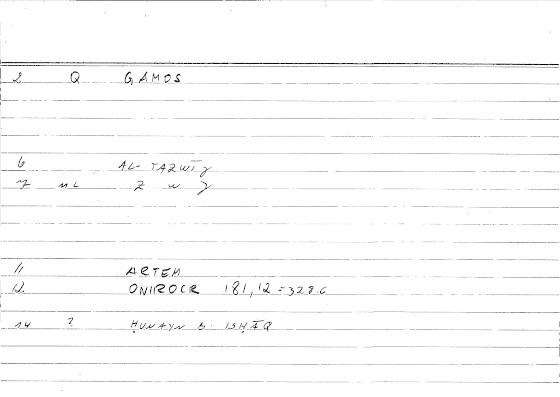 2 Q GAMOS
6 AL-TAZWĪǦ
7 ML Z W Ǧ
11 ARTEM
12 ONIROCR 181,12 = 328.6
14 ? ḤUNAYN B. ISḤĀQ